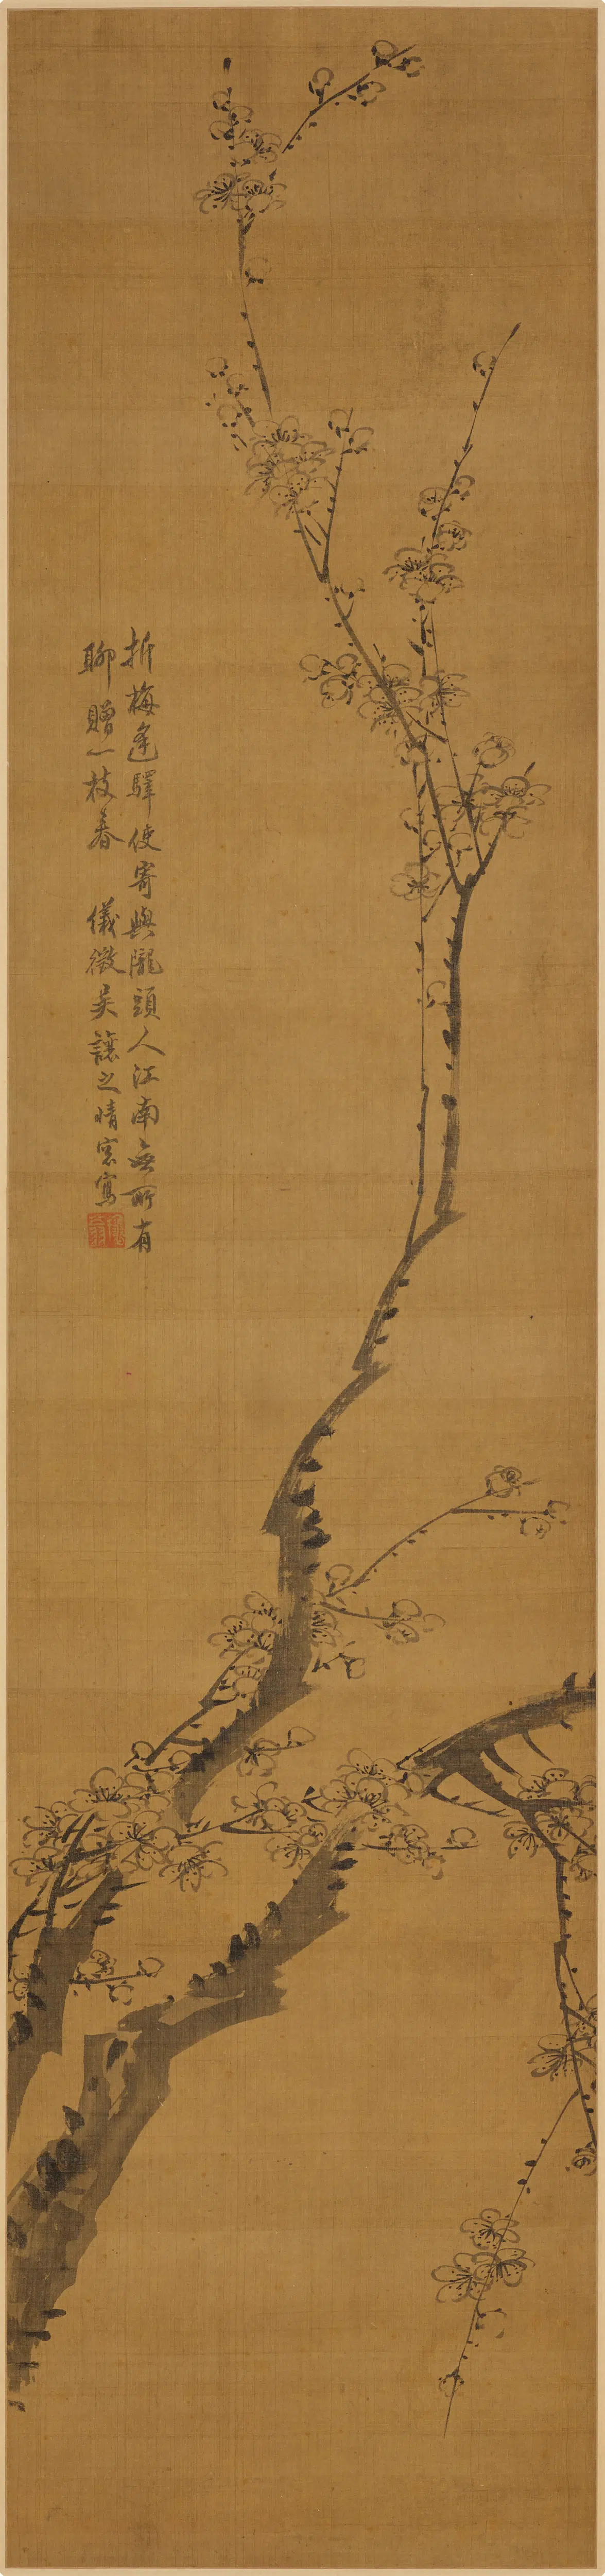 折梅逢驛使寄與隴頭人江南無所有
聊贈一枝春 儀徵吳讓之晴窓寫